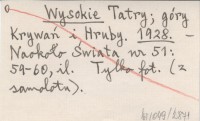 Wysokie Tatry; góry
Krywań i Hruby. 1928. -
Naokoło Świata nr 51:
59-60, il. Tylko fot. (z
samolotu).